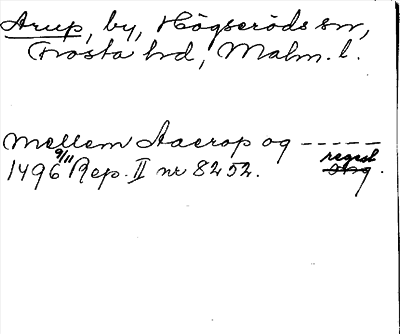 Arup, by, Högseröds sn,
Frosta hd, Malm. l.
mellem Aaerop og -----
1496 9/11 Rep. II nr 8252. regest.